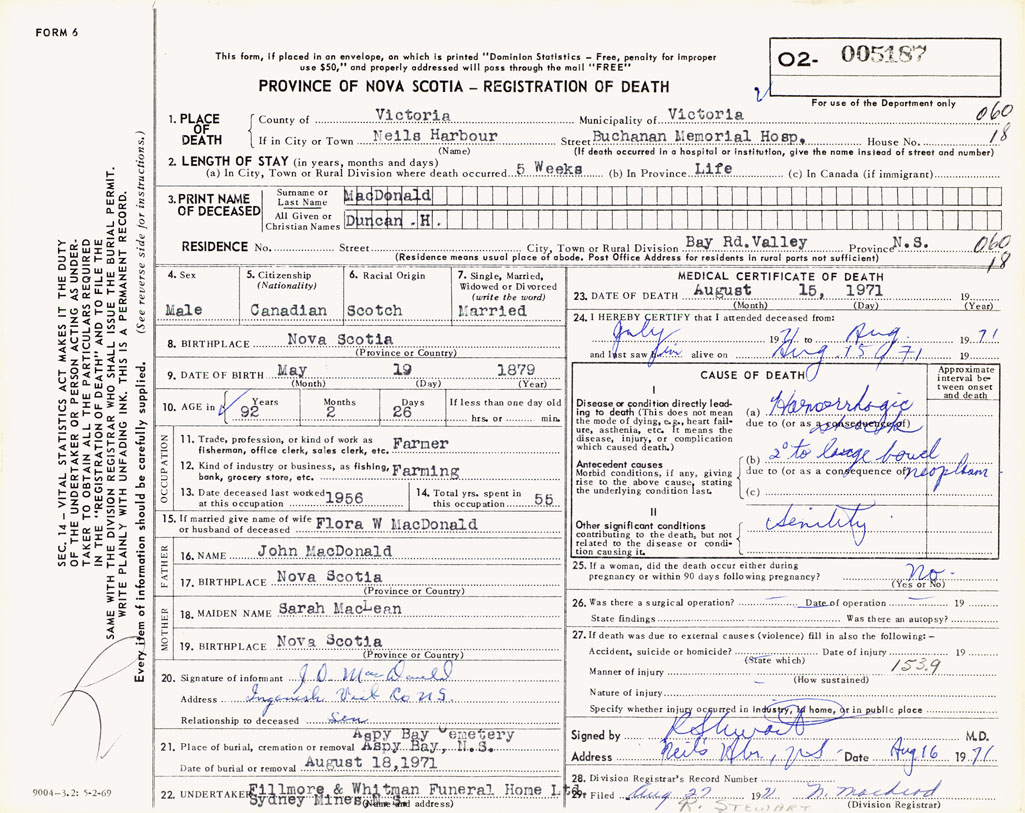 FORM 6
This form, if placed in an envelope, on which is printed "Dominion Statistics – Free, penalty for improper
use $50," and properly addressed will pass through the mail "FREE"
O2- 005187
PROVINCE OF NOVA SCOTIA – REGISTRATION OF DEATH
For use of the Department only
1. PLACE OF DEATH
County of Victoria Municipality of Victoria 060
If in City or Town Neils Harbour Street Buchanan Memorial Hosp. House No. 18
(Name) (If death occurred in a hospital or institution, give the name instead of street and number)
2. LENGTH OF STAY (in years, months and days)
(a) In City, Town or Rural Division where death occurred 5 Weeks (b) In Province Life (c) In Canada (if immigrant)
3. PRINT NAME OF DECEASED
Surname or Last Name MacDonald
All Given or Christian Names Duncan .H.
RESIDENCE No. Street City, Town or Rural Division Bay Rd.Valley Province N.S. 060
(Residence means usual place of abode. Post Office Address for residents in rural parts not sufficient) 18
4. Sex
Male
5. Citizenship
(Nationality)
Canadian
6. Racial Origin
Scotch
7. Single, Married,
Widowed or Divorced
(write the word)
Married
8. BIRTHPLACE Nova Scotia
(Province or Country)
9. DATE OF BIRTH May 19 1879
(Month) (Day) (Year)
10. AGE in Years Months Days If less than one day old
92 2 26 hrs. or min.
OCCUPATION
11. Trade, profession, or kind of work as
fisherman, office clerk, sales clerk, etc. Farmer
12. Kind of industry or business, as fishing,
bank, grocery store, etc. Farming
13. Date deceased last worked
at this occupation 1956
14. Total yrs. spent in
this occupation 55
15. If married give name of wife
or husband of deceased Flora W MacDonald
FATHER
16. NAME John MacDonald
17. BIRTHPLACE Nova Scotia
(Province or Country)
MOTHER
18. MAIDEN NAME Sarah MacLean
19. BIRTHPLACE Nova Scotia
(Province or Country)
20. Signature of informant J.D. MacDonald
Address Ingonish Vict Co N.S.
Relationship to deceased Son
Aspy Bay Cemetery
21. Place of burial, cremation or removal Aspy Bay, N.S.
Date of burial or removal August 18,1971
22. UNDERTAKER Fillmore & Whitman Funeral Home Ltd.
Sydney Mines N.S
(Name and address)
MEDICAL CERTIFICATE OF DEATH
23. DATE OF DEATH August 15, 1971 19
(Month) (Day) (Year)
24. I HEREBY CERTIFY that I attended deceased from:
July 1971 to Aug. 1971
and last saw him alive on Aug 15 1971 19
CAUSE OF DEATH
Approximate
interval be-
tween onset
and death
I
Disease or condition directly lead-
ing to death (This does not mean
the mode of dying, e.g., heart fail-
ure, asthenia, etc. It means the
disease, injury, or complication
which caused death.)
(a) Hemorrhagic
due to (or as a consequence of)
shock
Antecedent causes
Morbid conditions, if any, giving
rise to the above cause, stating
the underlying condition last.
(b) 2° to large bowel
due to (or as a consequence of) neoplasm
(c)
II
Other significant conditions
contributing to the death, but not
related to the disease or condi-
tion causing it.
Senility
25. If a woman, did the death occur either during
pregnancy or within 90 days following pregnancy? No.
(Yes or No)
26. Was there a surgical operation? – Date of operation – 19
State findings Was there an autopsy?
27. If death was due to external causes (violence) fill in also the following: –
Accident, suicide or homicide? Date of injury 19
(State which)
Manner of injury 153.9
(How sustained)
Nature of injury
Specify whether injury occurred in industry, in home, or in public place
Signed by R Stewart M.D.
Address Neil's Hbr, N.S Date Aug 16 1971
28. Division Registrar's Record Number
29. Filed Aug 27 1971 N. MacLeod
R. STEWART (Division Registrar)
SEC. 14 – VITAL STATISTICS ACT MAKES IT THE DUTY
OF THE UNDERTAKER OR PERSON ACTING AS UNDER-
TAKER TO OBTAIN ALL THE PARTICULARS REQUIRED
IN THE "REGISTRATION OF DEATH" AND TO FILE THE
SAME WITH THE DIVISION REGISTRAR WHO SHALL ISSUE THE BURIAL PERMIT.
WRITE PLAINLY WITH UNFADING INK. THIS IS A PERMANENT RECORD.
Every item of information should be carefully supplied. (See reverse side for instructions.)
9004-3.2: 5-2-69